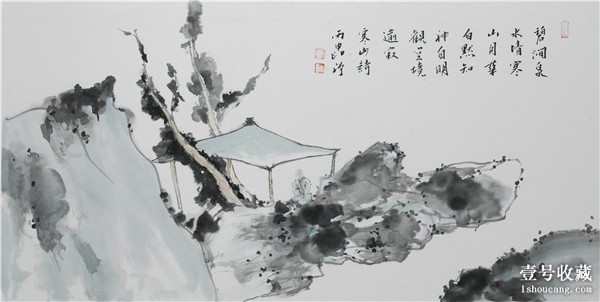 碧澗泉
水清寒
山月華
白默知
神自明
觀空境
逾寂
寒山詩
壹号收藏
1shoucang.com